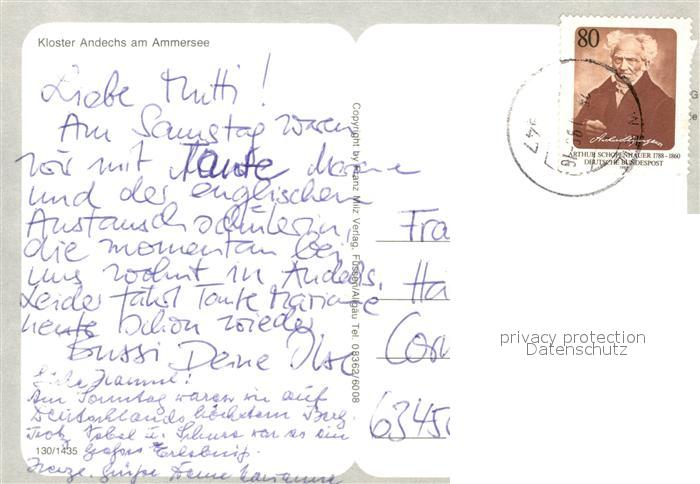 Kloster Andechs am Ammersee
Liebe Mutti!
Am Samstag waren
wir mit Tante Marianne
und der englischen
Austauschschülerin,
die momentan bei
uns wohnt in Andechs.
Leider fährt Tante Marianne
heute schon wieder.
Bussi Deine Ilse
Am Sonntag waren wir auf
Deutschlands höchstem Berg.
Trotz Nebel u. Schnee war es ein
großes Erlebnis.
Grüße Deine Marianne
130/1435
Copyright by Franz Milz Verlag, Füssen/Allgäu Tel. 08362/6008
80
ARTHUR SCHOPENHAUER 1788-1860
DEUTSCHE BUNDESPOST
Fra
Ha
6345
privacy protection
Datenschutz